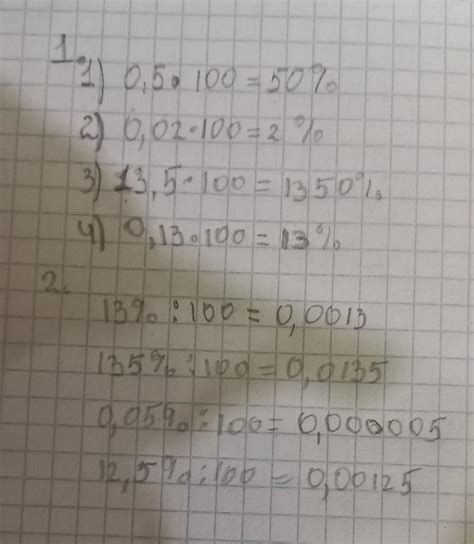 1.
1) 0,5 • 100 = 50%
2) 0,02 • 100 = 2%
3) 13,5 • 100 = 1350%
4) 0,13 • 100 = 13%
2.
13% : 100 = 0,0013
135% : 100 = 0,0135
0,05% : 100 = 0,000005
12,5% : 100 = 0,00125